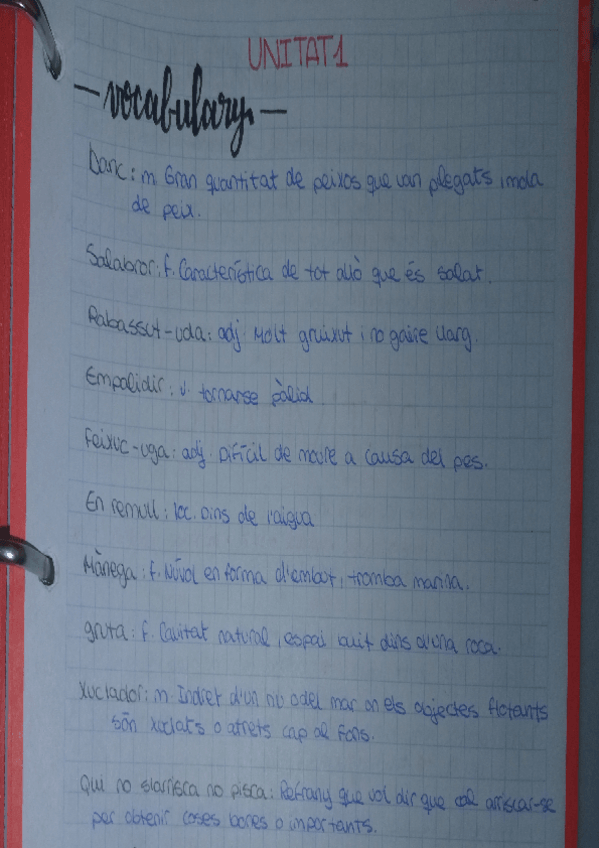 UNITAT 1
-vocabulary-
banc: m. Gran quantitat de peixos que van plegats, mola
de peix.
Salabror: f. Característica de tot allò que és salat.
Rabassut-uda: adj. Molt gruixut i no gaire llarg.
Empalidir: v. tornarse pàlid
Feixuc-uga: adj. Difícil de moure a causa del pes.
En remull: loc. Dins de l'aigua
Mànega: f. Núvol en forma d'embut, tromba marina.
gruta: f. Cavitat natural, espai buit dins d'una roca.
Xuclador: m. Indret d'un riu o del mar on els objectes flotants
són xuclats o atrets cap al fons.
Qui no s'arrisca no pisca: Refrany que vol dir que cal arriscar-se
per obtenir coses bones o importants.